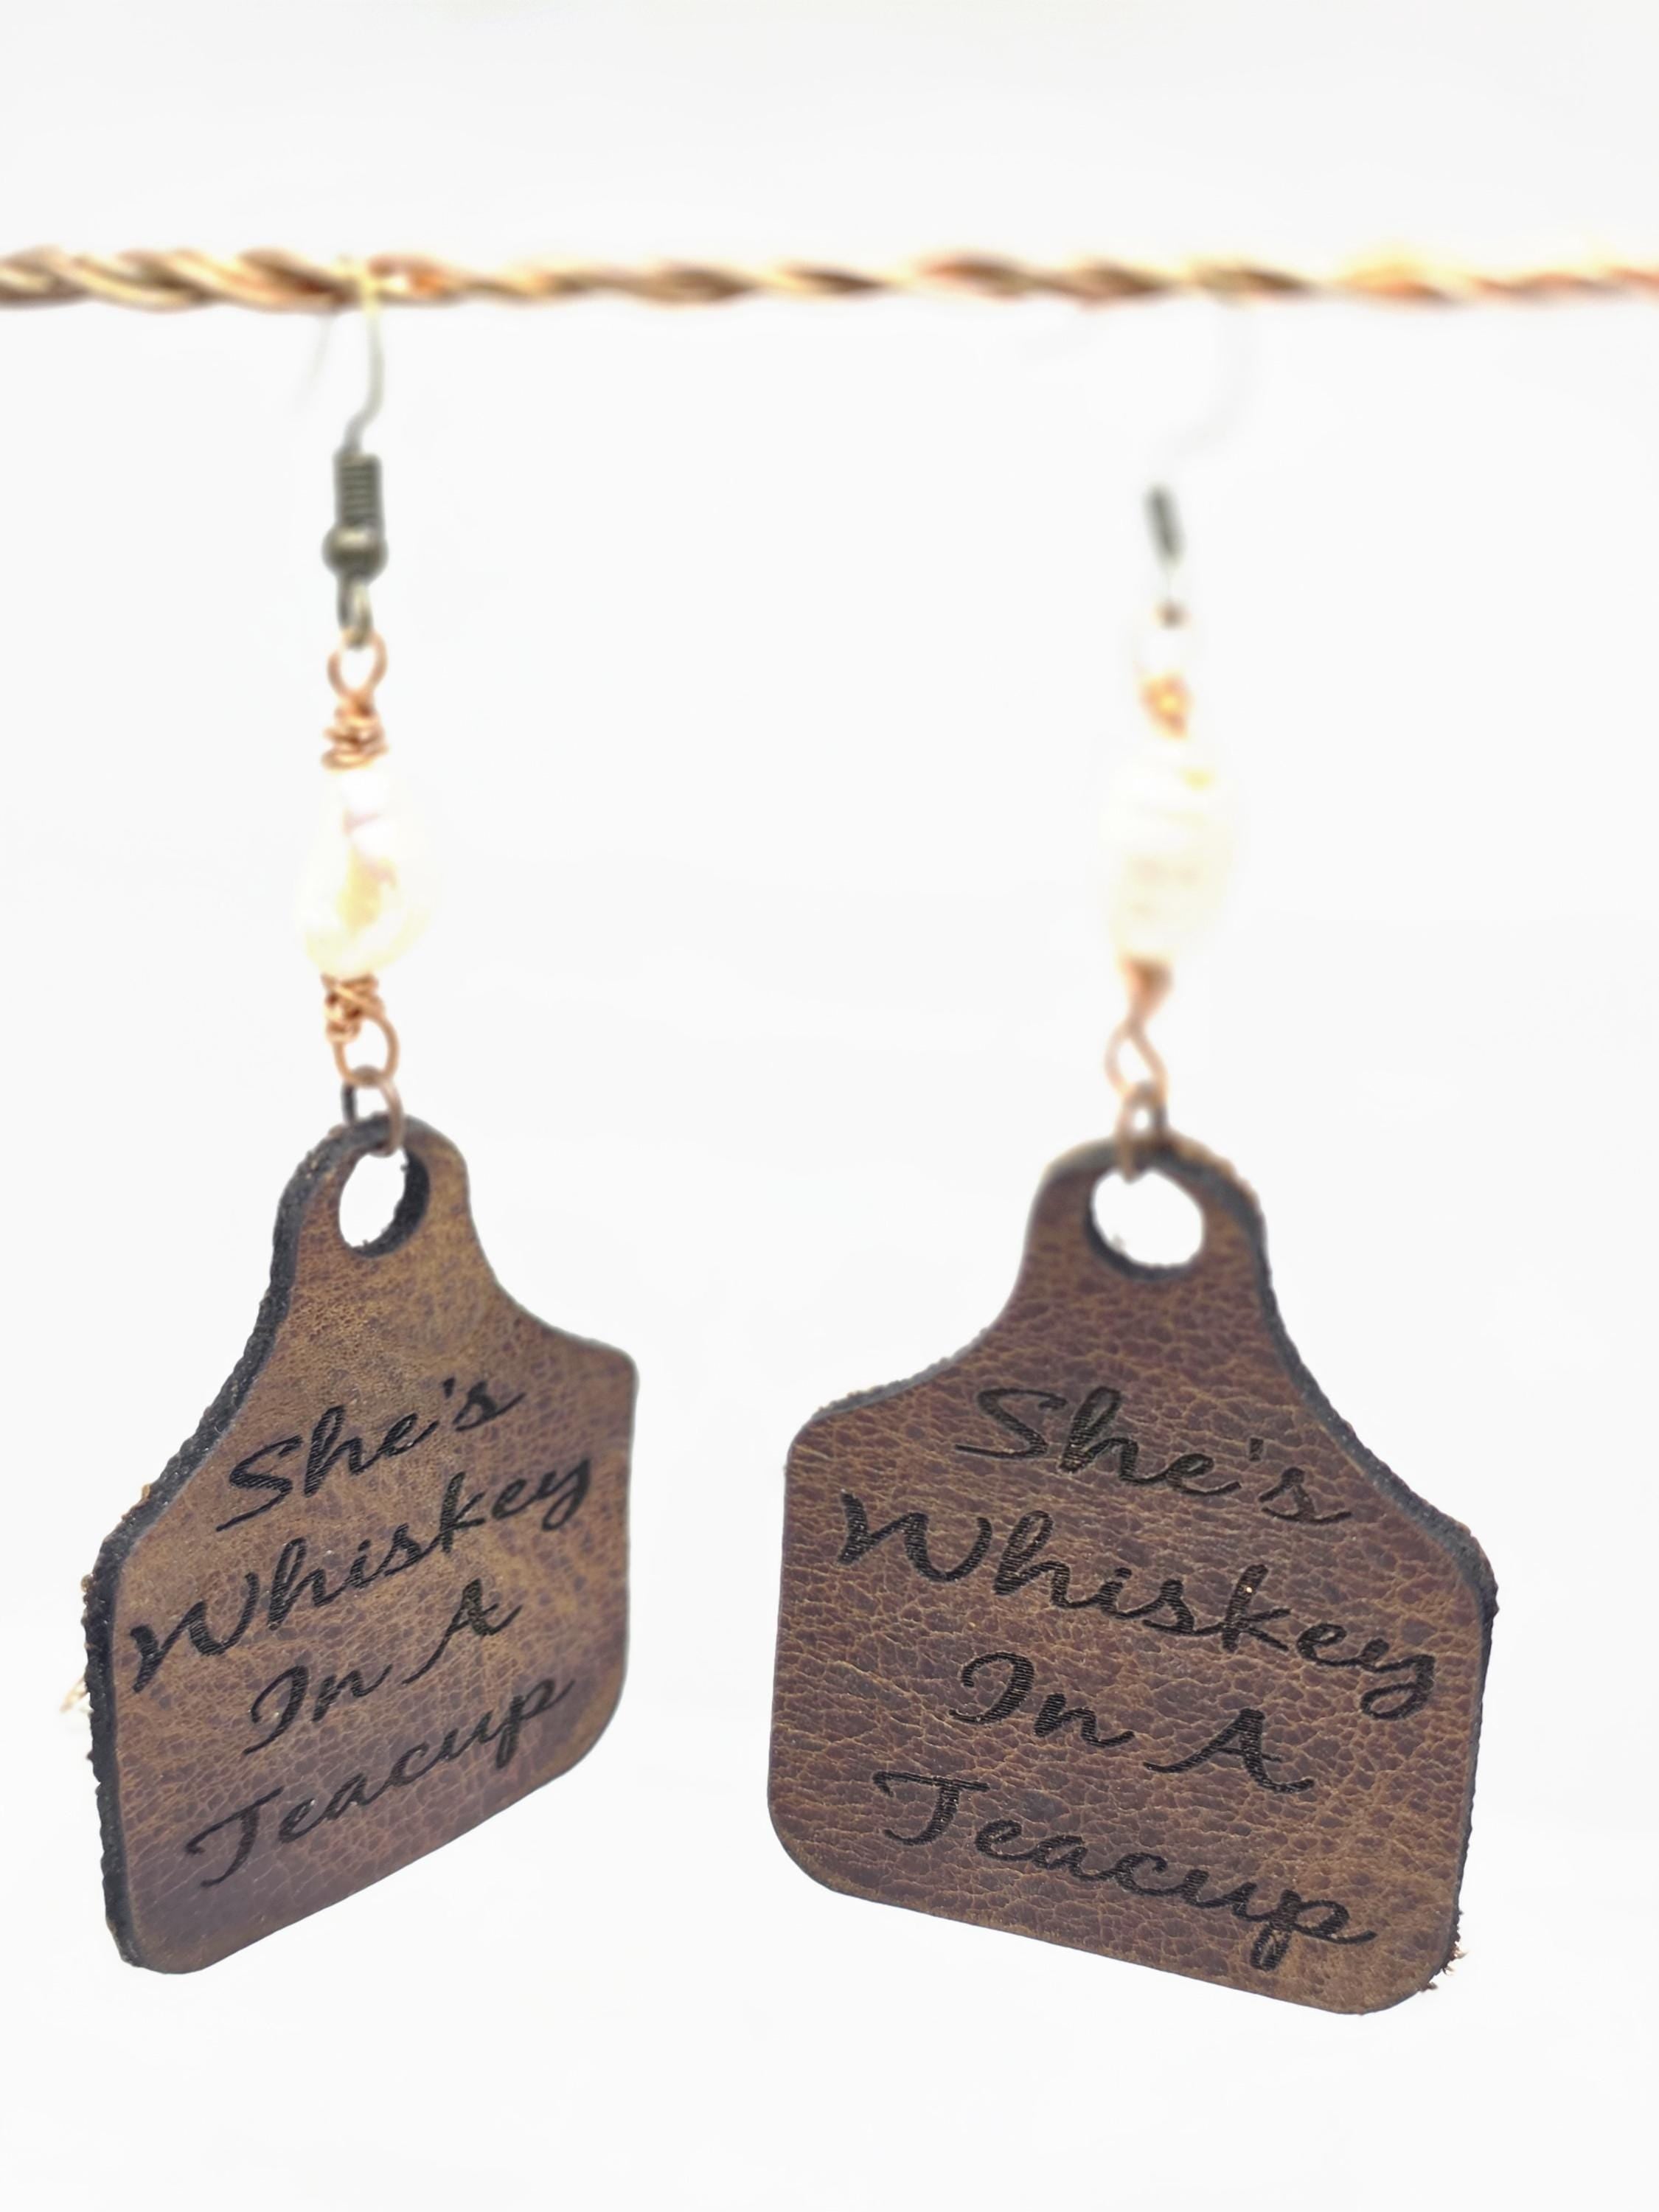 She's
Whiskey
In A
Teacup
She's
Whiskey
In A
Teacup